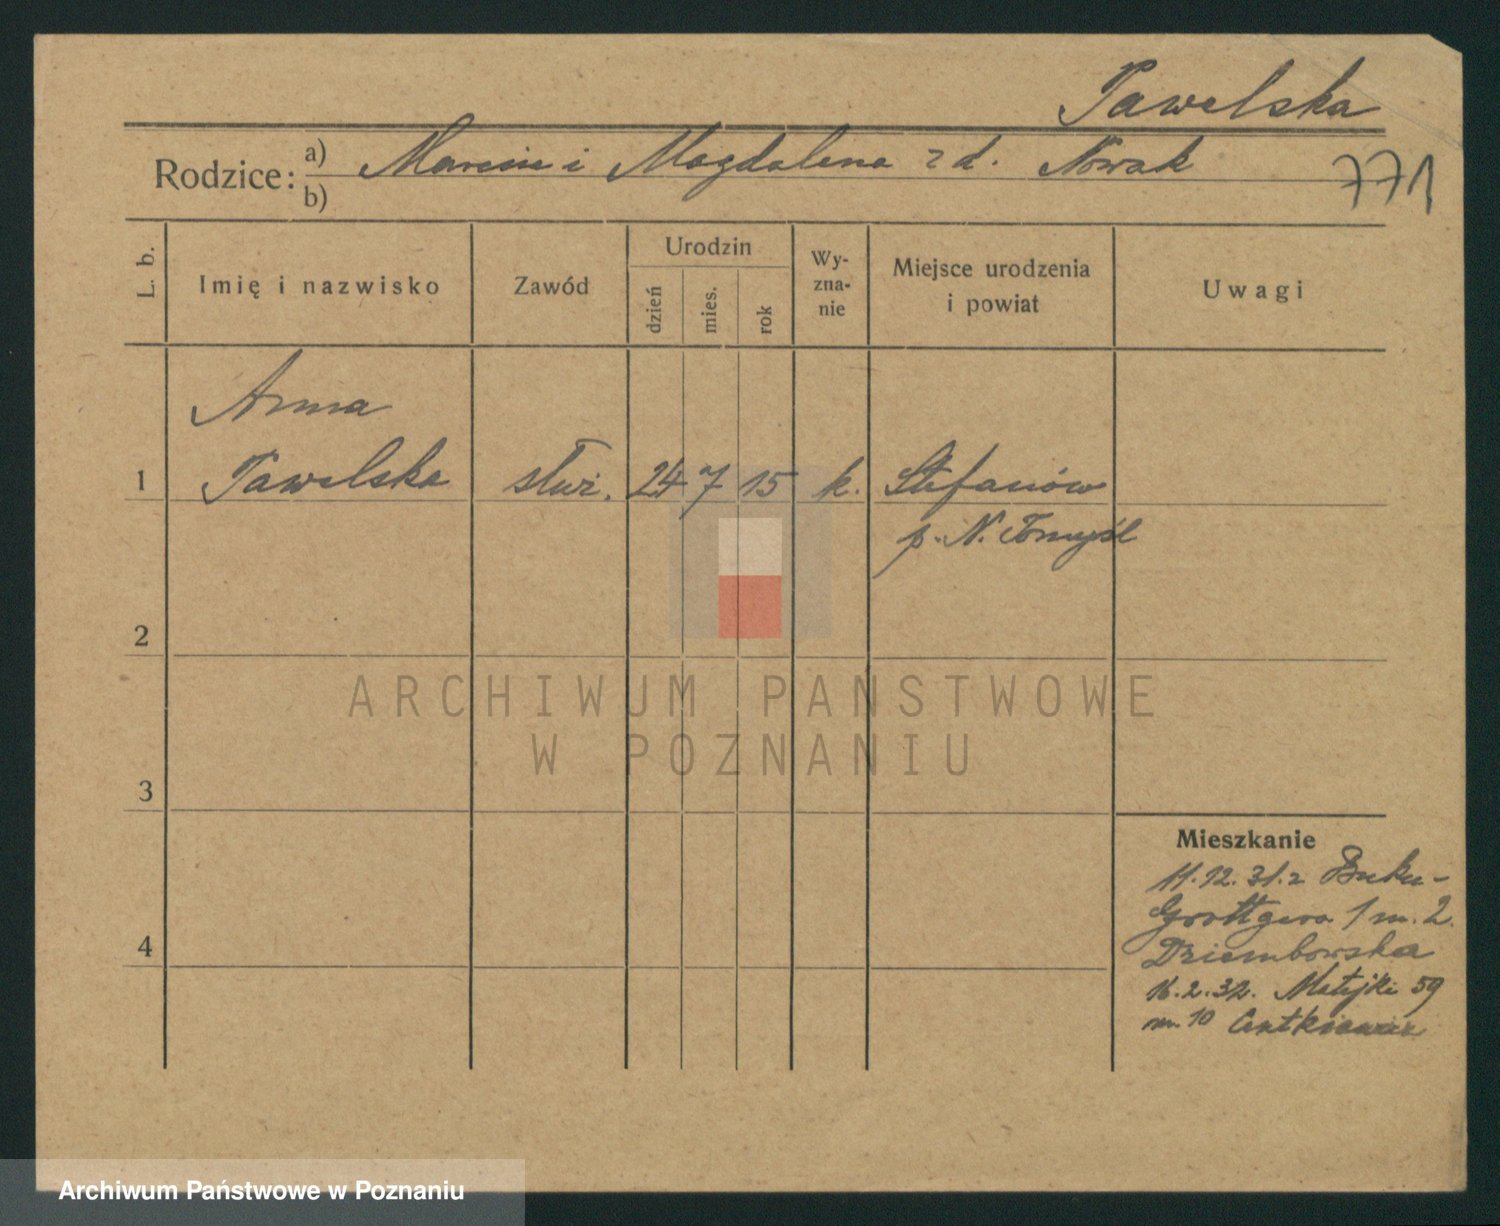 Pawelska
Rodzice: a) Marcin i Magdalena z d. Nowak
b)
771
L. b.
Imię i nazwisko
Zawód
Urodzin
dzień
mies.
rok
Wy-
zna-
nie
Miejsce urodzenia
i powiat
Uwagi
Anna
1 Pawelska służ. 24 7 15 k. Stefanów
p. N. Tomyśl
2
3
4
Mieszkanie
11.12.31. z Buku-
Grottgera 1 m. 2.
Dziembowska
16.2.32. Matejki 59
m. 10
ARCHIWUM PAŃSTWOWE
W POZNANIU
Archiwum Państwowe w Poznaniu